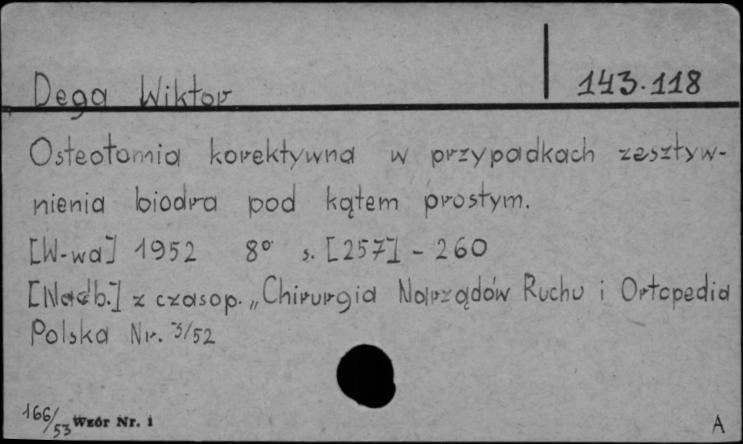 Dega Wiktor 143.118
Osteotomia korektywna w przypadkach zesztyw-
nienia biodra pod kątem prostym.
[W-wa] 1952 8° s. [257] - 260
[Nadb.] z czasop. „Chirurgia Narządów Ruchu i Ortopedia
Polska Nr. 3/52
166/53 Wzór Nr. 1 A